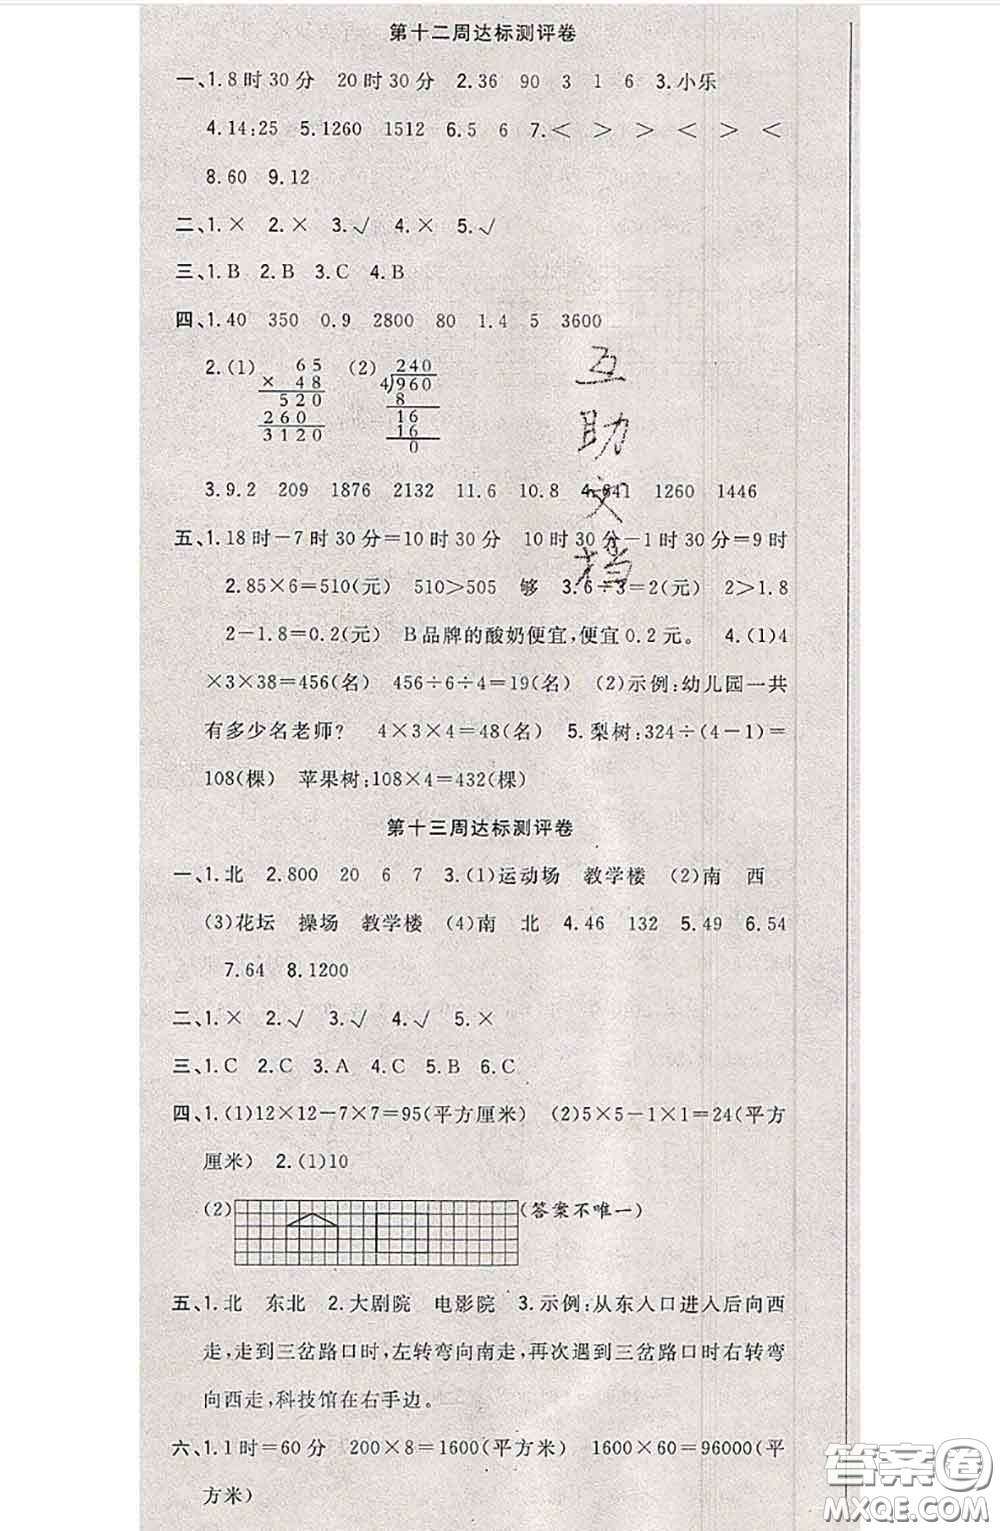 第十二周达标测评卷
一、1.8时30分 20时30分 2.36 90 3 1 6 3.小乐
4.14:25 5.1260 1512 6.5 6 7.< > > < > <
8.60 9.12
二、1.× 2.× 3.√ 4.× 5.√
三、1.B 2.B 3.C 4.B
四、1.40 350 0.9 2800 80 1.4 5 3600
2.(1) 65 (2) 240
× 48 4)960
520 8
260 16
3120 16
0
3.9.2 209 1876 2132 11.6 10.8 4.841 1260 1446
五、1.18时-7时30分=10时30分 10时30分-1时30分=9时
2.85×6=510(元) 510>505 够 3.6÷3=2(元) 2>1.8
2-1.8=0.2(元) B品牌的酸奶便宜,便宜0.2元。 4.(1)4
×3×38=456(名) 456÷6÷4=19(名) (2)示例:幼儿园一共
有多少名老师? 4×3×4=48(名) 5.梨树:324÷(4-1)=
108(棵) 苹果树:108×4=432(棵)
互助文档
第十三周达标测评卷
一、1.北 2.800 20 6 7 3.(1)运动场 教学楼 (2)南 西
(3)花坛 操场 教学楼 (4)南 北 4.46 132 5.49 6.54
7.64 8.1200
二、1.× 2.√ 3.√ 4.√ 5.×
三、1.C 2.C 3.A 4.C 5.B 6.C
四、1.(1)12×12-7×7=95(平方厘米) (2)5×5-1×1=24(平方
厘米) 2.(1)10
(2) (答案不唯一)
五、1.北 东北 2.大剧院 电影院 3.示例:从东入口进入后向西
走,走到三岔路口时,左转弯向南走,再次遇到三岔路口时右转弯
向西走,科技馆在右手边。
六、1.1时=60分 200×8=1600(平方米) 1600×60=96000(平
方米)
答案卷
MXQE.COM